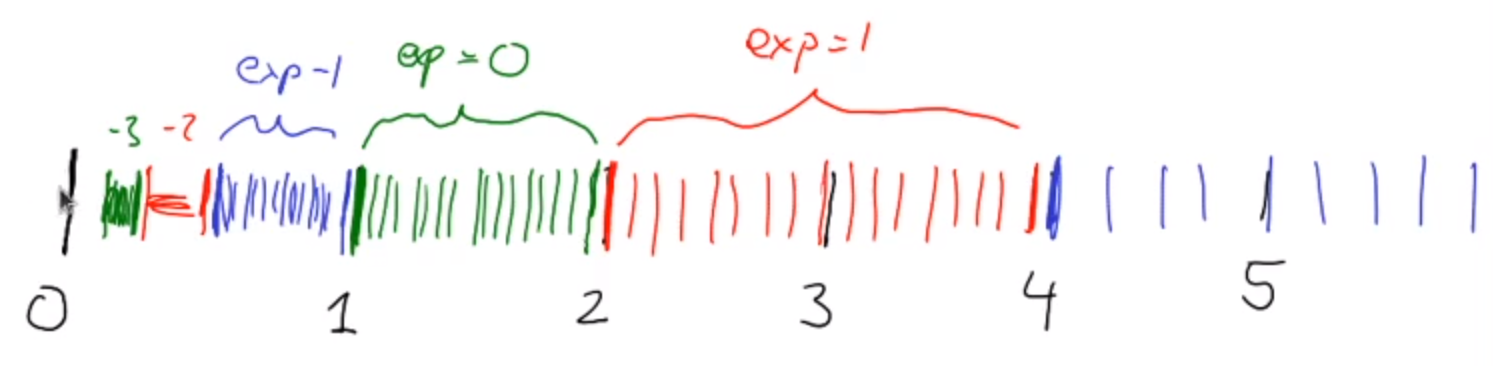 exp-1 exp=0 exp=1
-3 -2
0 1 2 3 4 5